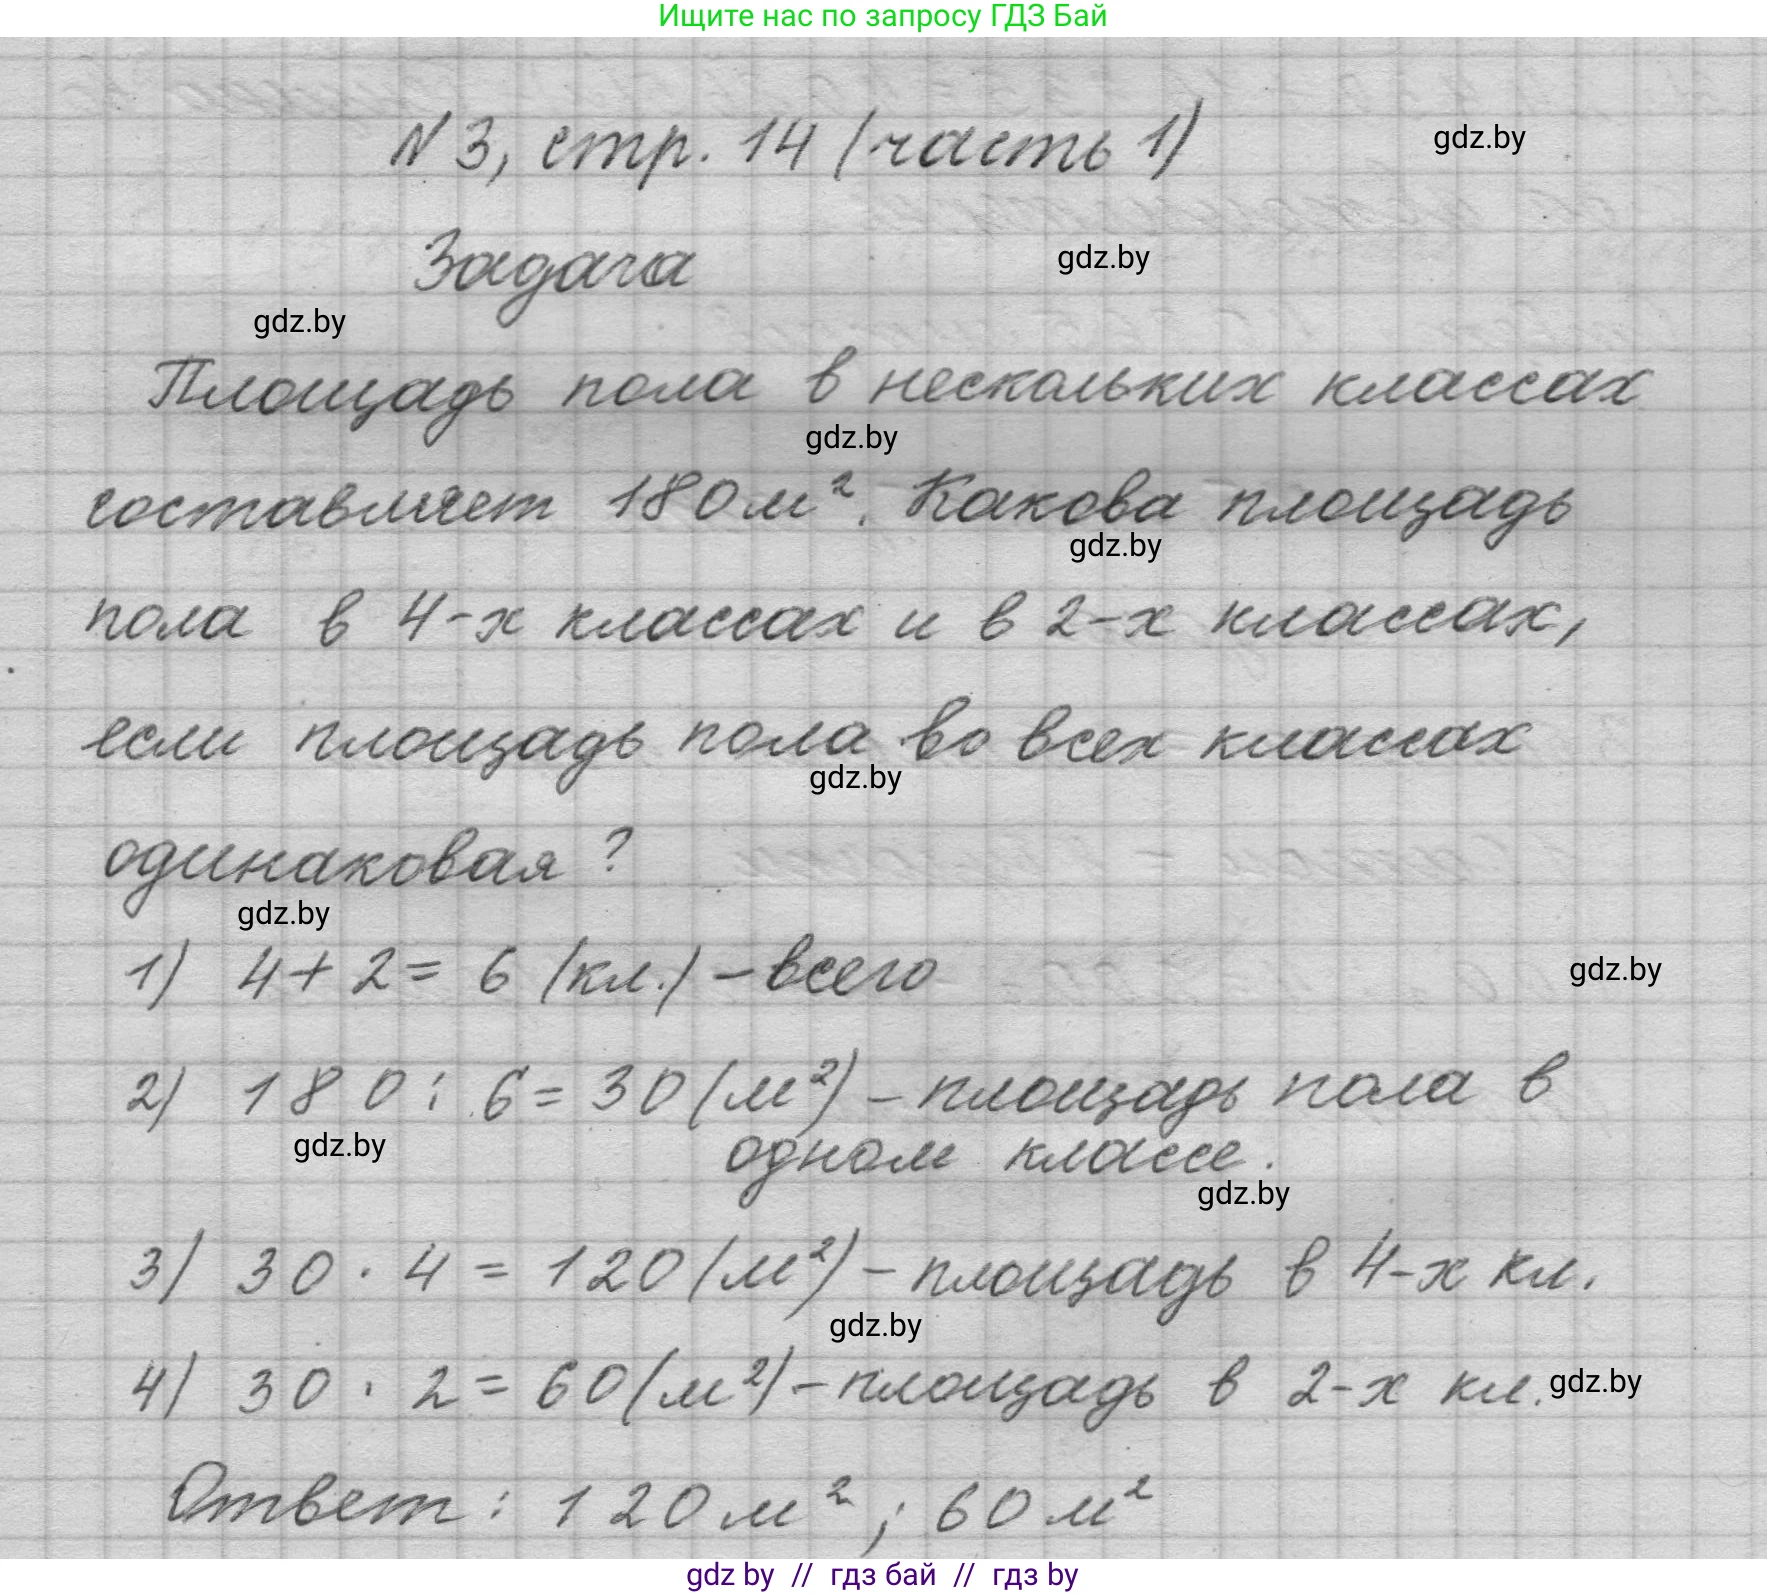 Ищите нас по запросу ГДЗ Бай
N 3, стр. 14 (часть 1)
gdz.by
Задача
gdz.by
gdz.by
Площадь пола в нескольких классах
gdz.by
составляет 180 м². Какова площадь
gdz.by
пола в 4-х классах и в 2-х классах,
если площадь пола во всех классах
gdz.by
одинаковая?
gdz.by
1) 4+2= 6 (кл.) – всего
gdz.by
2) 180 : 6 = 30 (м²) – площадь пола в
gdz.by
одном классе.
gdz.by
3) 30 · 4 = 120 (м²) – площадь в 4-х кл.
gdz.by
4) 30 · 2 = 60 (м²) – площадь в 2-х кл.
gdz.by
Ответ: 120 м²; 60 м²
gdz by // гдз бай // гдз by